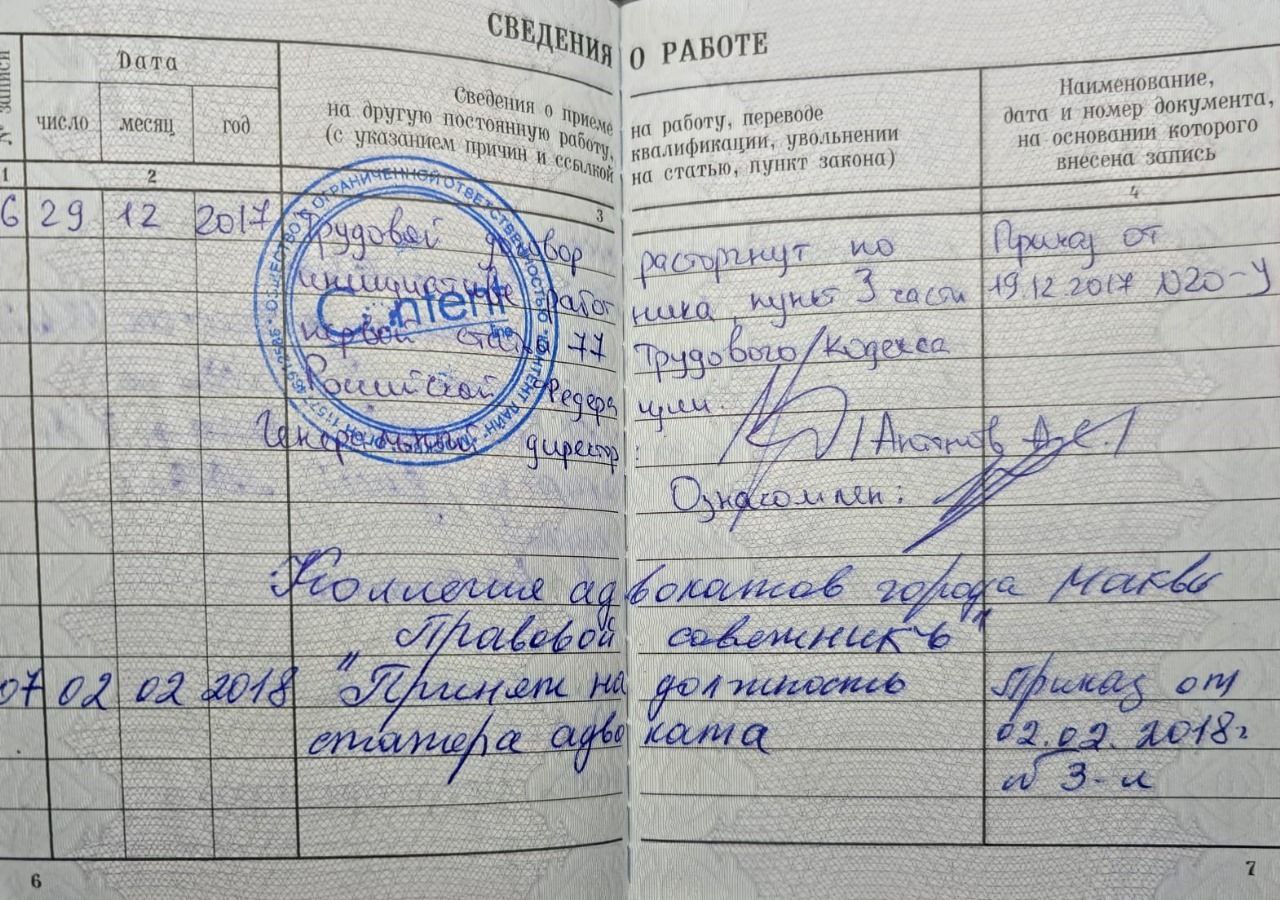 СВЕДЕНИЯ О РАБОТЕ
№ записи
Дата
число месяц год
Сведения о приеме на работу, переводе
на другую постоянную работу, квалификации, увольнении
(с указанием причин и ссылкой на статью, пункт закона)
Наименование,
дата и номер документа,
на основании которого
внесена запись
1 2 3 4
6 29 12 2017 Трудовой договор расторгнут по Приказ от
инициативе работника, пункт 3 части 19.12.2017 N20-У
первой статьи 77 Трудового Кодекса
Российской Федерации.
Генеральный директор: /
Ознакомлен:
ОБЩЕСТВО С ОГРАНИЧЕННОЙ ОТВЕТСТВЕННОСТЬЮ
КОНТЕНТ ЛАЙН
Content
line
Коллегия адвокатов города Москвы
"Правовой советникъ"
07 02 02 2018 "Принят на должность Приказ от
стажера адвоката 02.02.2018г
N 3-л
6
7